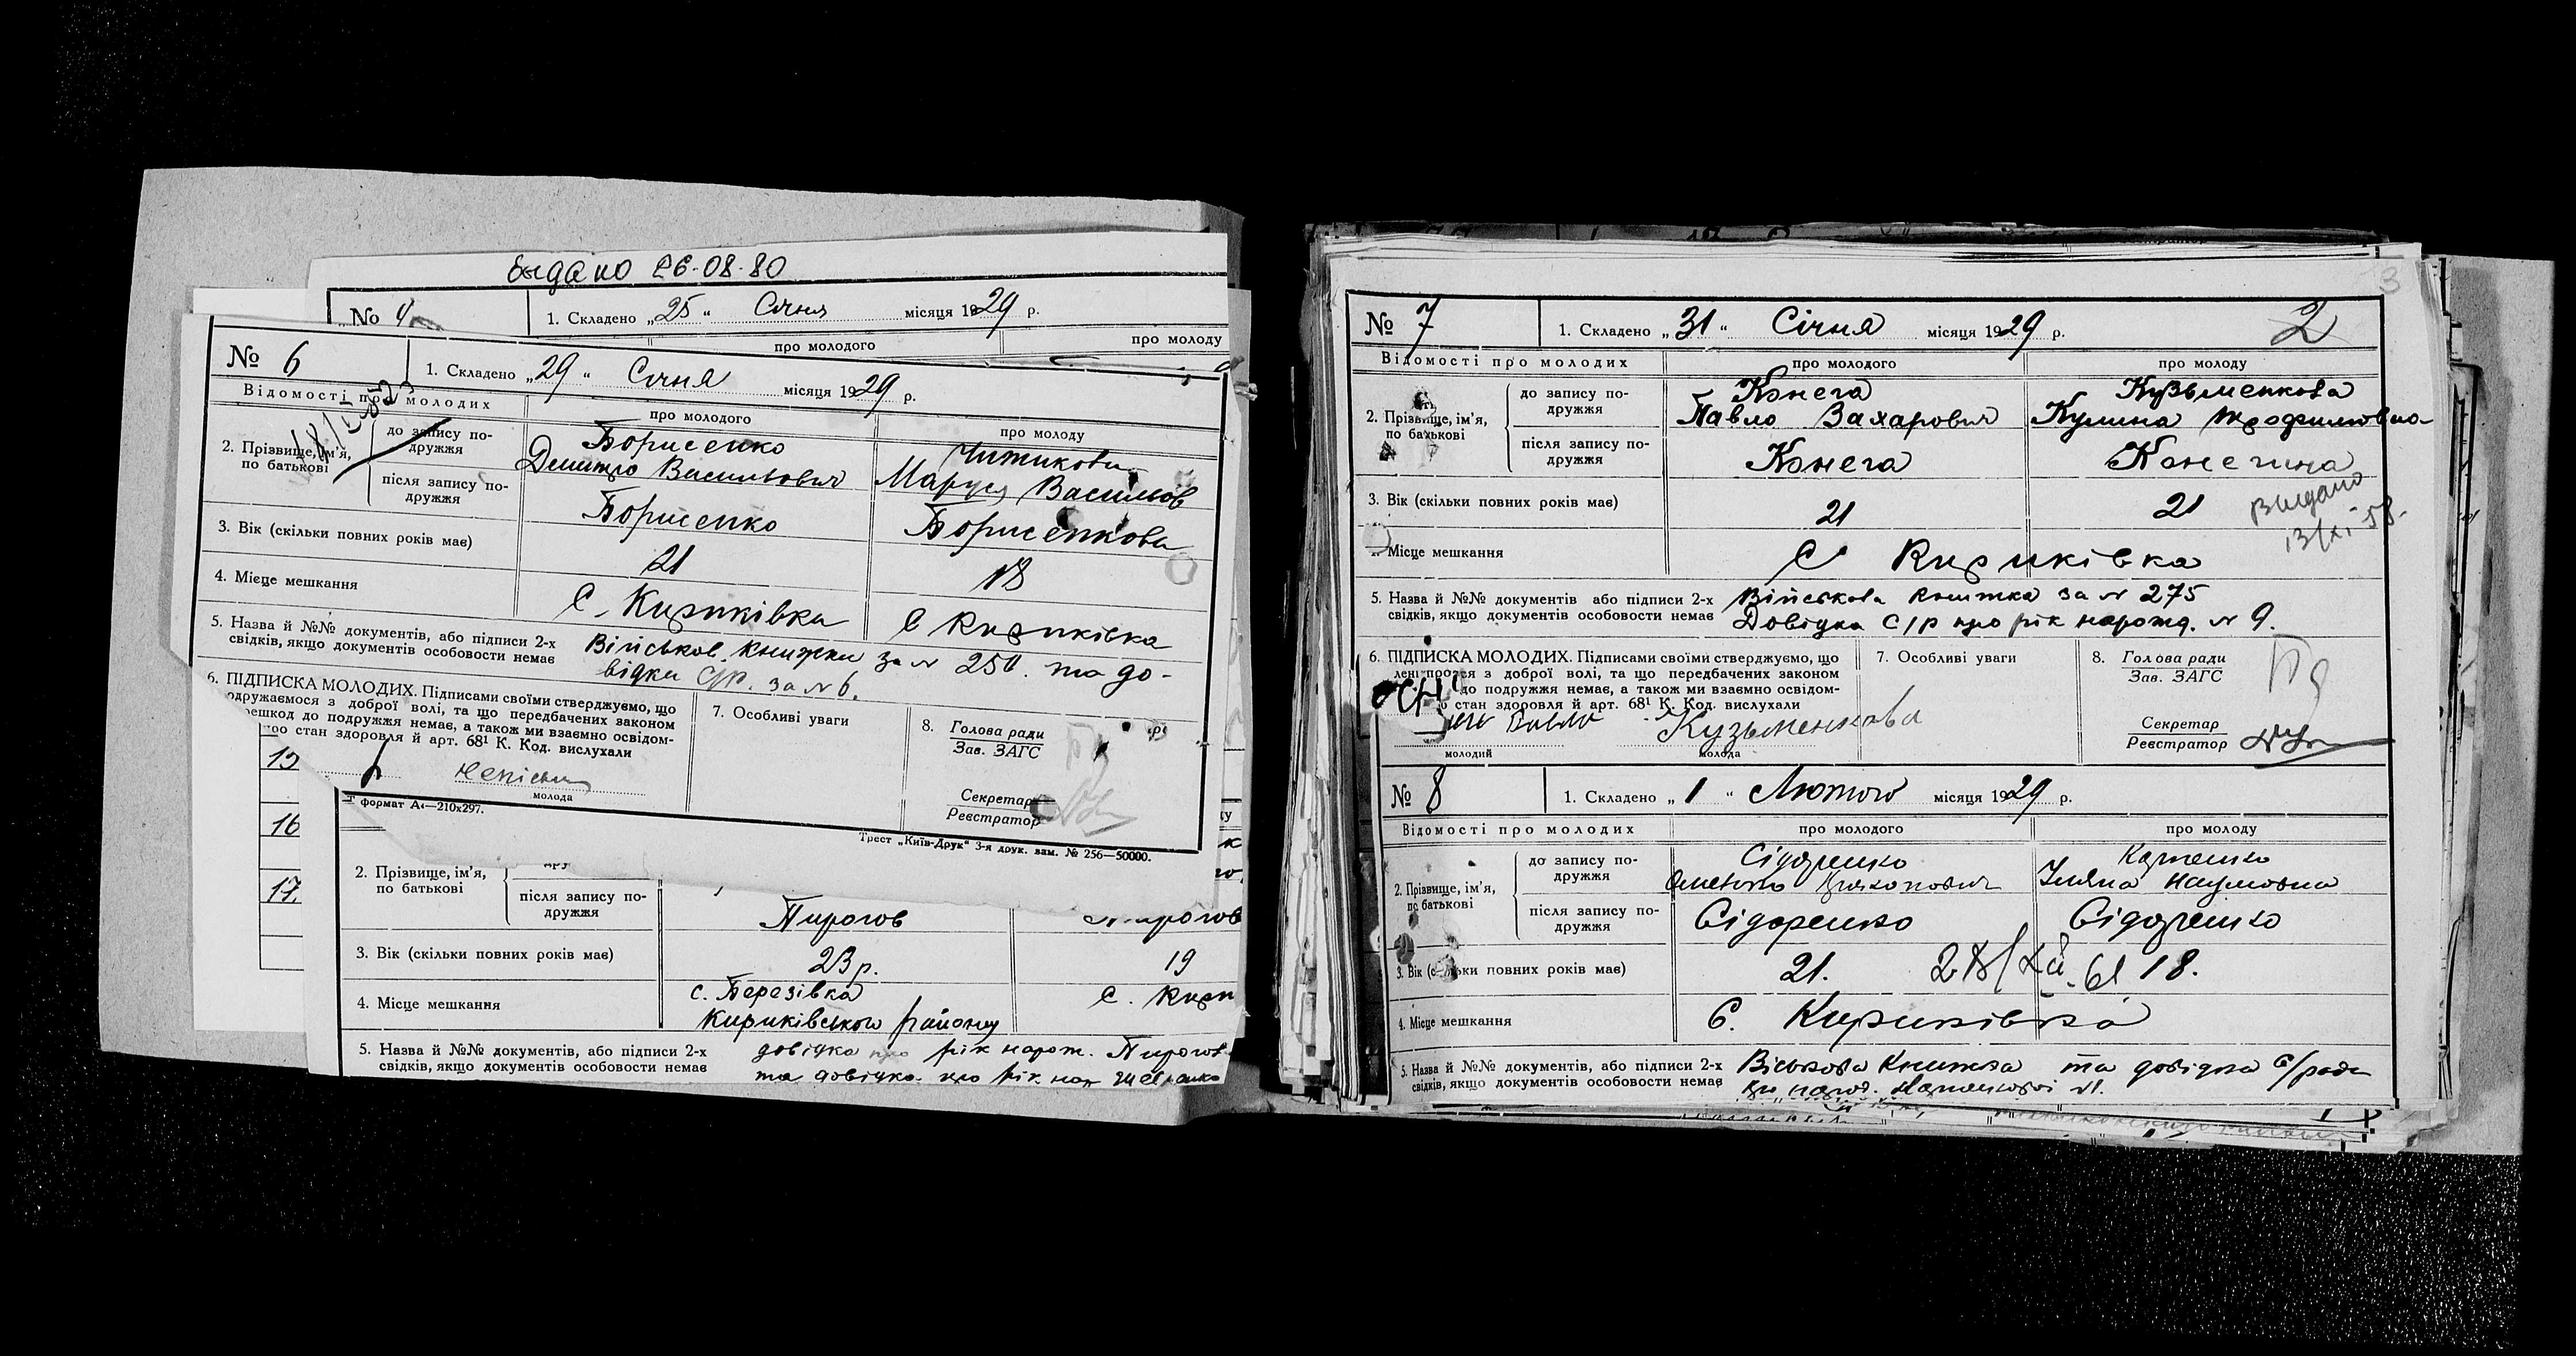 видано 26-08-80
№ 4 1. Складено „25“ Січня місяця 1929 р.
про молодого про молоду
№ 6 1. Складено „29“ Січня місяця 1929 р.
Відомості про молодих про молодого про молоду
2. Прізвище, ім'я, по батькові
до запису подружжя
Борисенко
Дмитро Васильович
Чижикова
Маруся Васильов
після запису подружжя
Борисенко Борисенкова
3. Вік (скільки повних років має) 21 18
4. Місце мешкання С. Кириківка С Кириківка
5. Назва й №№ документів, або підписи 2-х
свідків, якщо документів особовости немає
Військов. книжки за № 250. та до-
відки С/р. за № 6.
6. ПІДПИСКА МОЛОДИХ. Підписами своїми стверджуємо, що
одружаємося з доброї волі, та що передбачених законом
решкод до подружжя немає, а також ми взаємно освідом-
стан здоровля й арт. 68¹ К. Код. вислухали
неписьм
молода
7. Особливі уваги
8. Голова ради
Зав. ЗАГС
Секретар
Реєстратор
т формат А4—210х297.
Трест „Київ-Друк“ 3-я друк. зам. № 256—50000.
15
16
17.
2. Прізвище, ім'я,
по батькові
після запису по-
дружжя
Пирогов Пирогов
3. Вік (скільки повних років має) 23 р. 19
4. Місце мешкання
с. Березівка
Кириківського району
С. Кири
5. Назва й №№ документів, або підписи 2-х
свідків, якщо документів особовости немає
довідка про рік нарож. Пирогов
та довідка про рік нар
№ 7 1. Складено „31“ Січня місяця 1929 р. 2
3
Відомості про молодих про молодого про молоду
2. Прізвище, ім'я,
по батькові
до запису по-
дружжя
Конега
Павло Захарович
Кузьменкова
Кулина Трофимовна
після запису по-
дружжя
Конега Конегина
3. Вік (скільки повних років має) 21 21
Выдано
13/XI-58.
Місце мешкання С Кириківка
5. Назва й №№ документів або підписи 2-х
свідків, якщо документів особовости немає
Військова книжка за № 275
Довідка С/р про рік нарожд. № 9.
6. ПІДПИСКА МОЛОДИХ. Підписами своїми стверджуємо, що
з доброї волі, та що передбачених законом
до подружжя немає, а також ми взаємно освідом-
стан здоровля й арт. 68¹ К. Код. вислухали
Кузьменкова
молодий молода
7. Особливі уваги
8. Голова ради
Зав. ЗАГС
Секретар
Реєстратор
№ 8 1. Складено „1“ Лютого місяця 1929 р.
Відомості про молодих про молодого про молоду
2. Прізвище, ім'я,
по батькові
до запису по-
дружжя
Сідоренко
Уляна Наумовна
після запису по-
дружжя
Сідоренко Сідоренко
3. Вік (скільки повних років має) 21. 18.
4. Місце мешкання С. Кириківка
5. Назва й №№ документів, або підписи 2-х
свідків, якщо документів особовости немає
Віськова Книжка та довідка С/ради